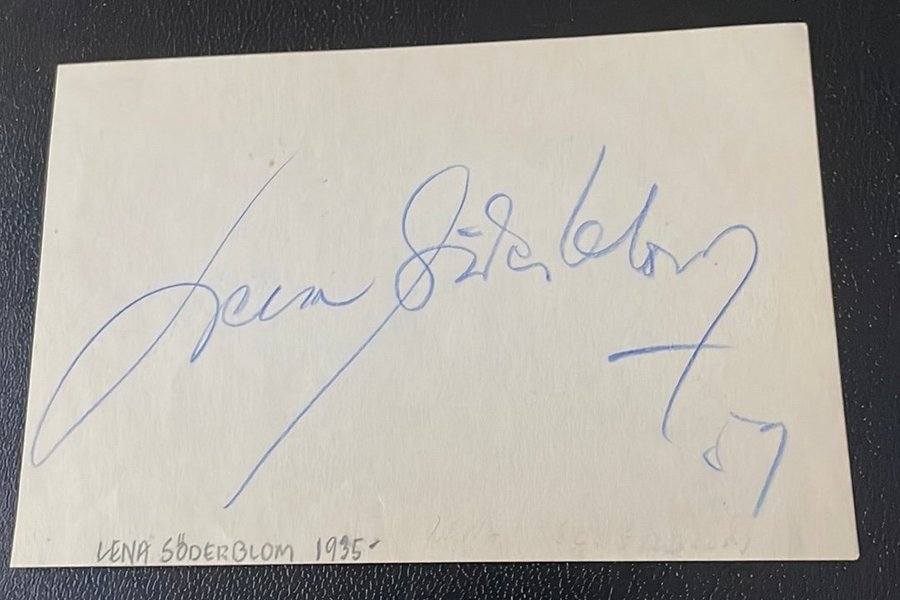 Lena Söderblom
57
LENA SÖDERBLOM 1935-